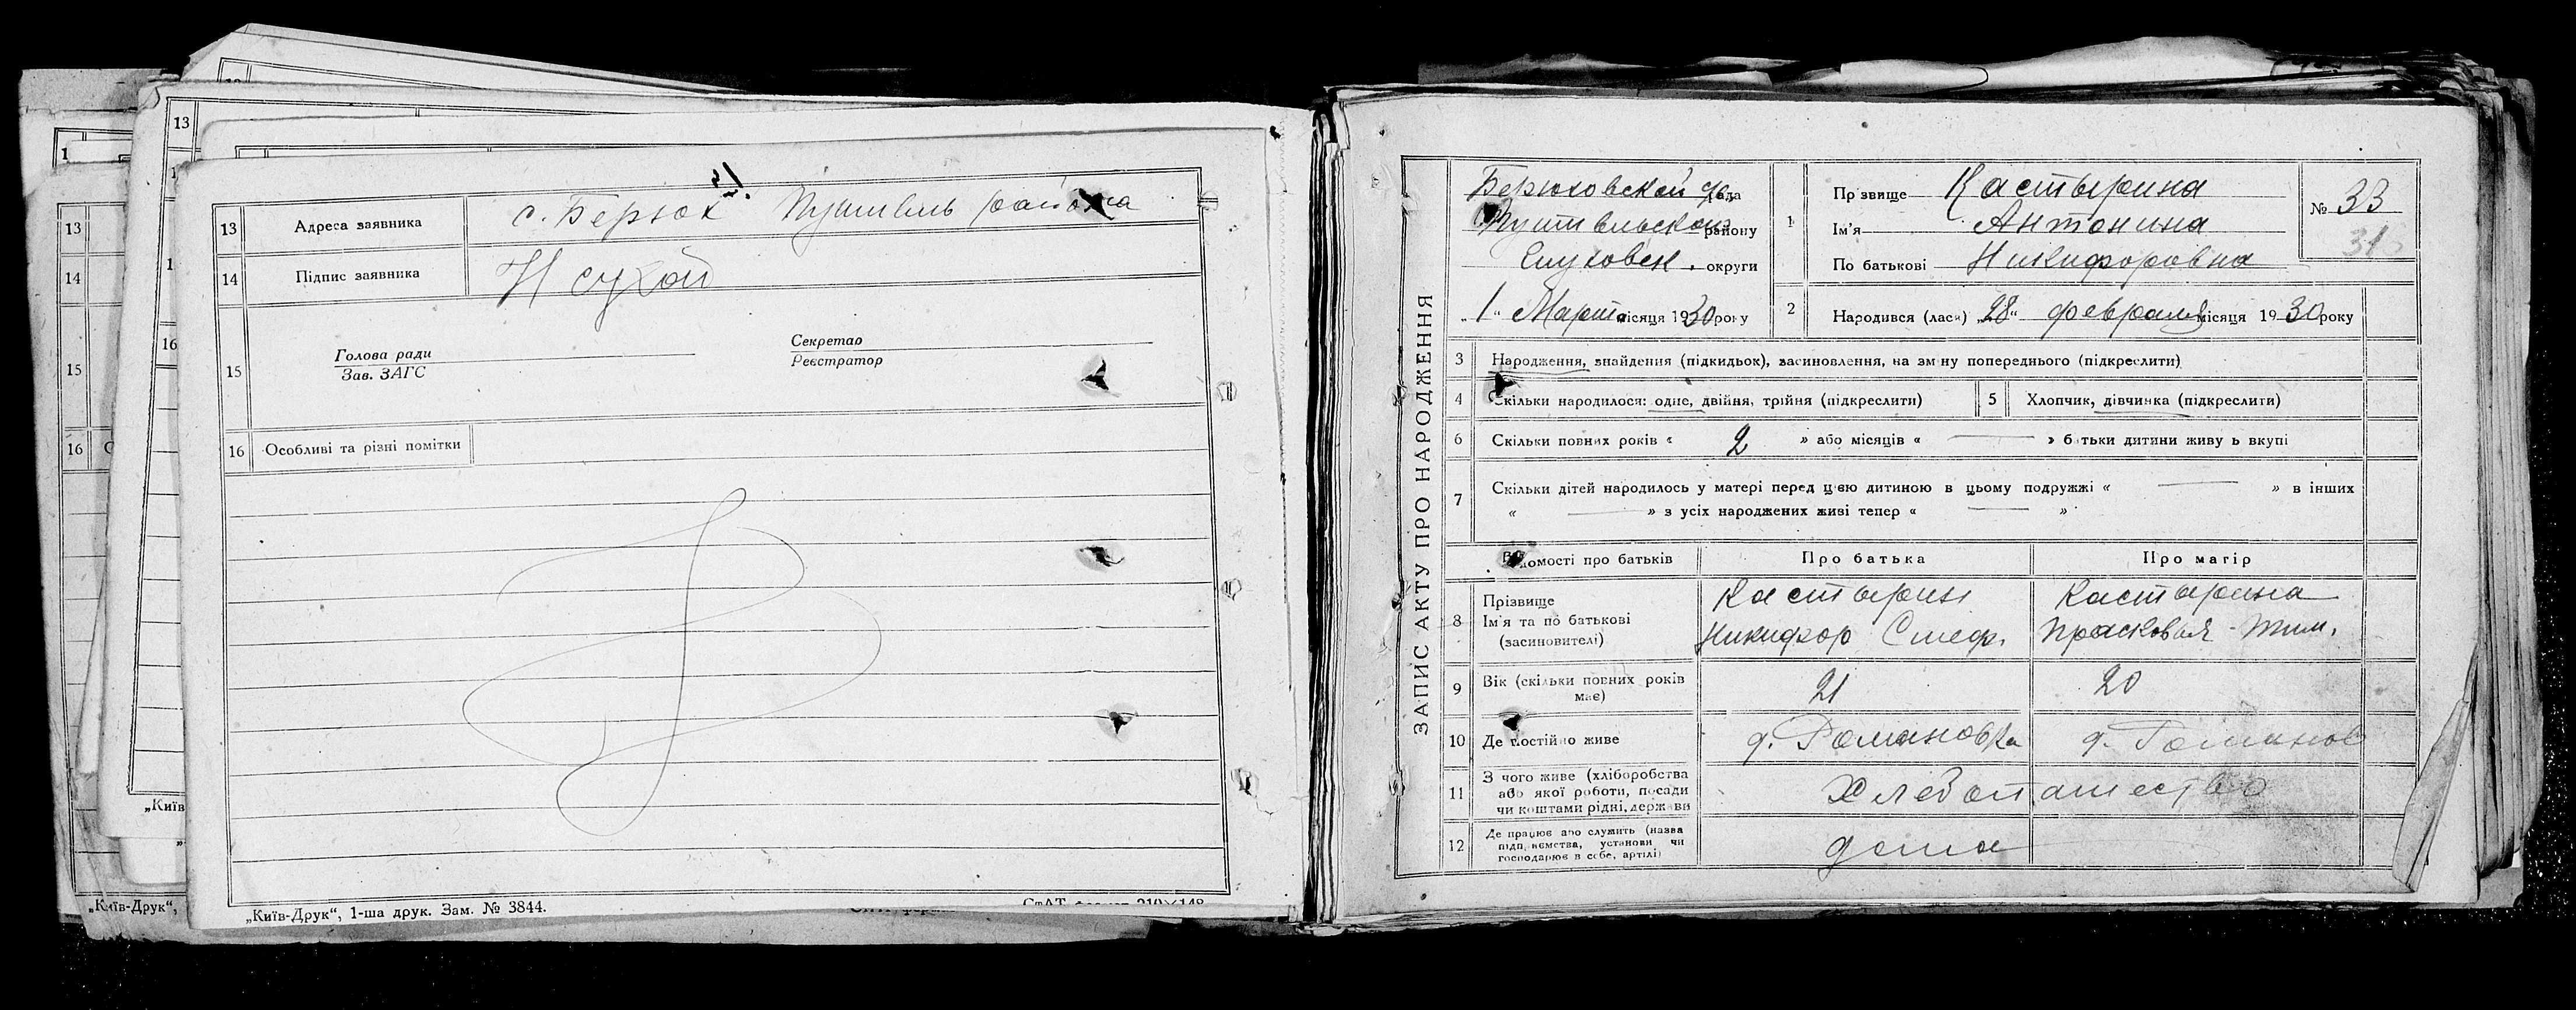 13 Адреса заявника с. Берюх Путивль района
14 Підпис заявника Н сухой
15 Голова ради Секретар
Зав. ЗАГС Реєстратор
16 Особливі та різні помітки
„Київ-Друк“, 1-ша друк. Зам. № 3844.
ЗАПИС АКТУ ПРО НАРОДЖЕННЯ
Берюховской рада
Путивльской району
Глуховск. округи
„1“ Марта місяця 1930 року
1 Прізвище Кастырина
Ім'я Антонина
По батькові Никифоровна
№ 33
31
2 Народився (лася) „28“ февраля місяця 1930 року
3 Народження, знайдення (підкидьок), засиновлення, на зміну попереднього (підкреслити)
4 Скільки народилося: одне, двійня, трійня (підкреслити) 5 Хлопчик, дівчинка (підкреслити)
6 Скільки повних років « 2 » або місяців « — » батьки дитини живуть вкупі
7 Скільки дітей народилось у матері перед цією дитиною в цьому подружжі « — » в інших
« — » з усіх народжених живі тепер « — »
Відомості про батьків Про батька Про матір
8 Прізвище Ім'я та по батькові (засиновителі)
Кастырин Кастырина
Никифор Стеф. Прасковья Тим.
9 Вік (скільки повних років має) 21 20
10 Де постійно живе д. Романовка д. Романов
11 З чого живе (хліборобства або якої роботи, посади чи коштами рідні, держави Хлебопашество
12 Де працює або служить (назва підприємства, установи чи господарює в себе, артілі) дома